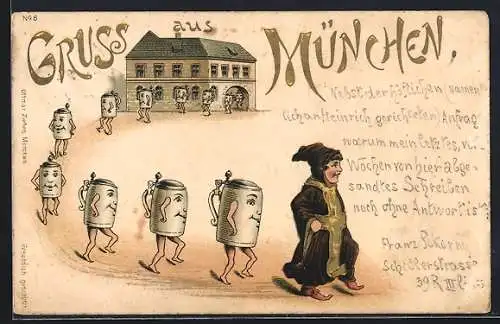 No 8
GRUSS aus MÜNCHEN.
Nebst der höflichen
gerichteten Anfrag
warum mein letztes, v.
Wochen von hier abge-
sandtes Schreiben
noch ohne Antwort ist
Franz
Schillerstrasse
39
Ottmar Zieher, München
Gesetzlich geschützt